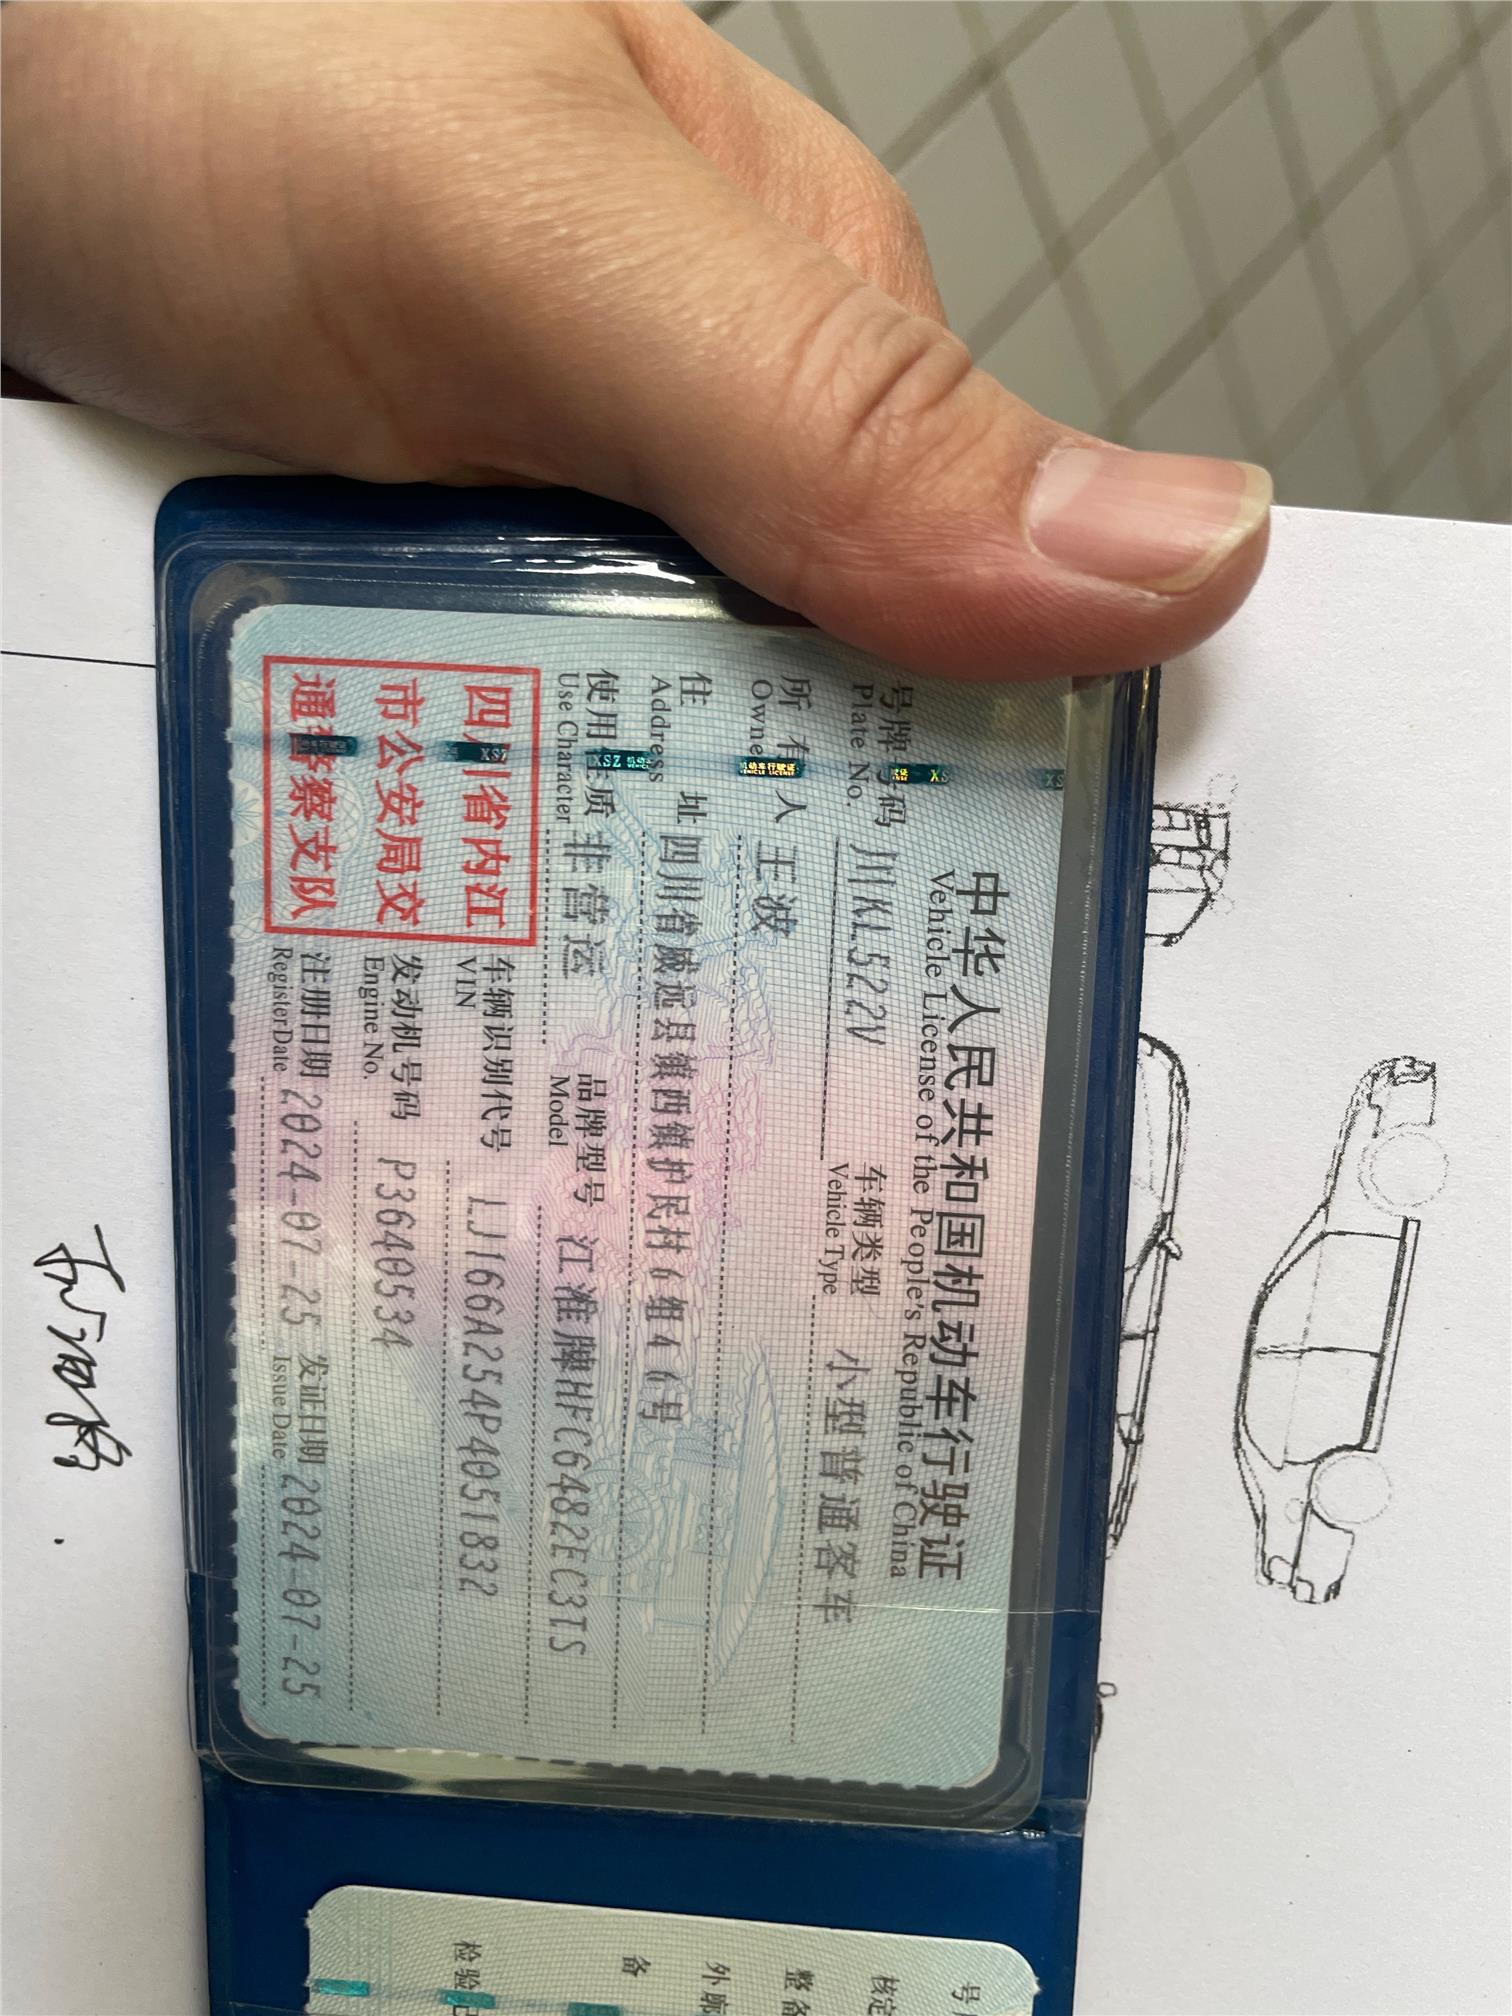 中华人民共和国机动车行驶证
Vehicle License of the People's Republic of China
号牌号码 川KL522V 车辆类型 小型普通客车
Plate No. Vehicle Type
所有人 王波
Owner
住址 四川省威远县镇西镇护民村6组46号
Address
使用性质 非营运 品牌型号 江淮牌HFC6482EC3TS
Use Character Model
四川省内江
市公安局交
通警察支队
车辆识别代号 LJ166A254P4051832
VIN
发动机号码 P3640534
Engine No.
注册日期 2024-07-25 发证日期 2024-07-25
Register Date Issue Date
号
核定
整备
外廓
备
检验记